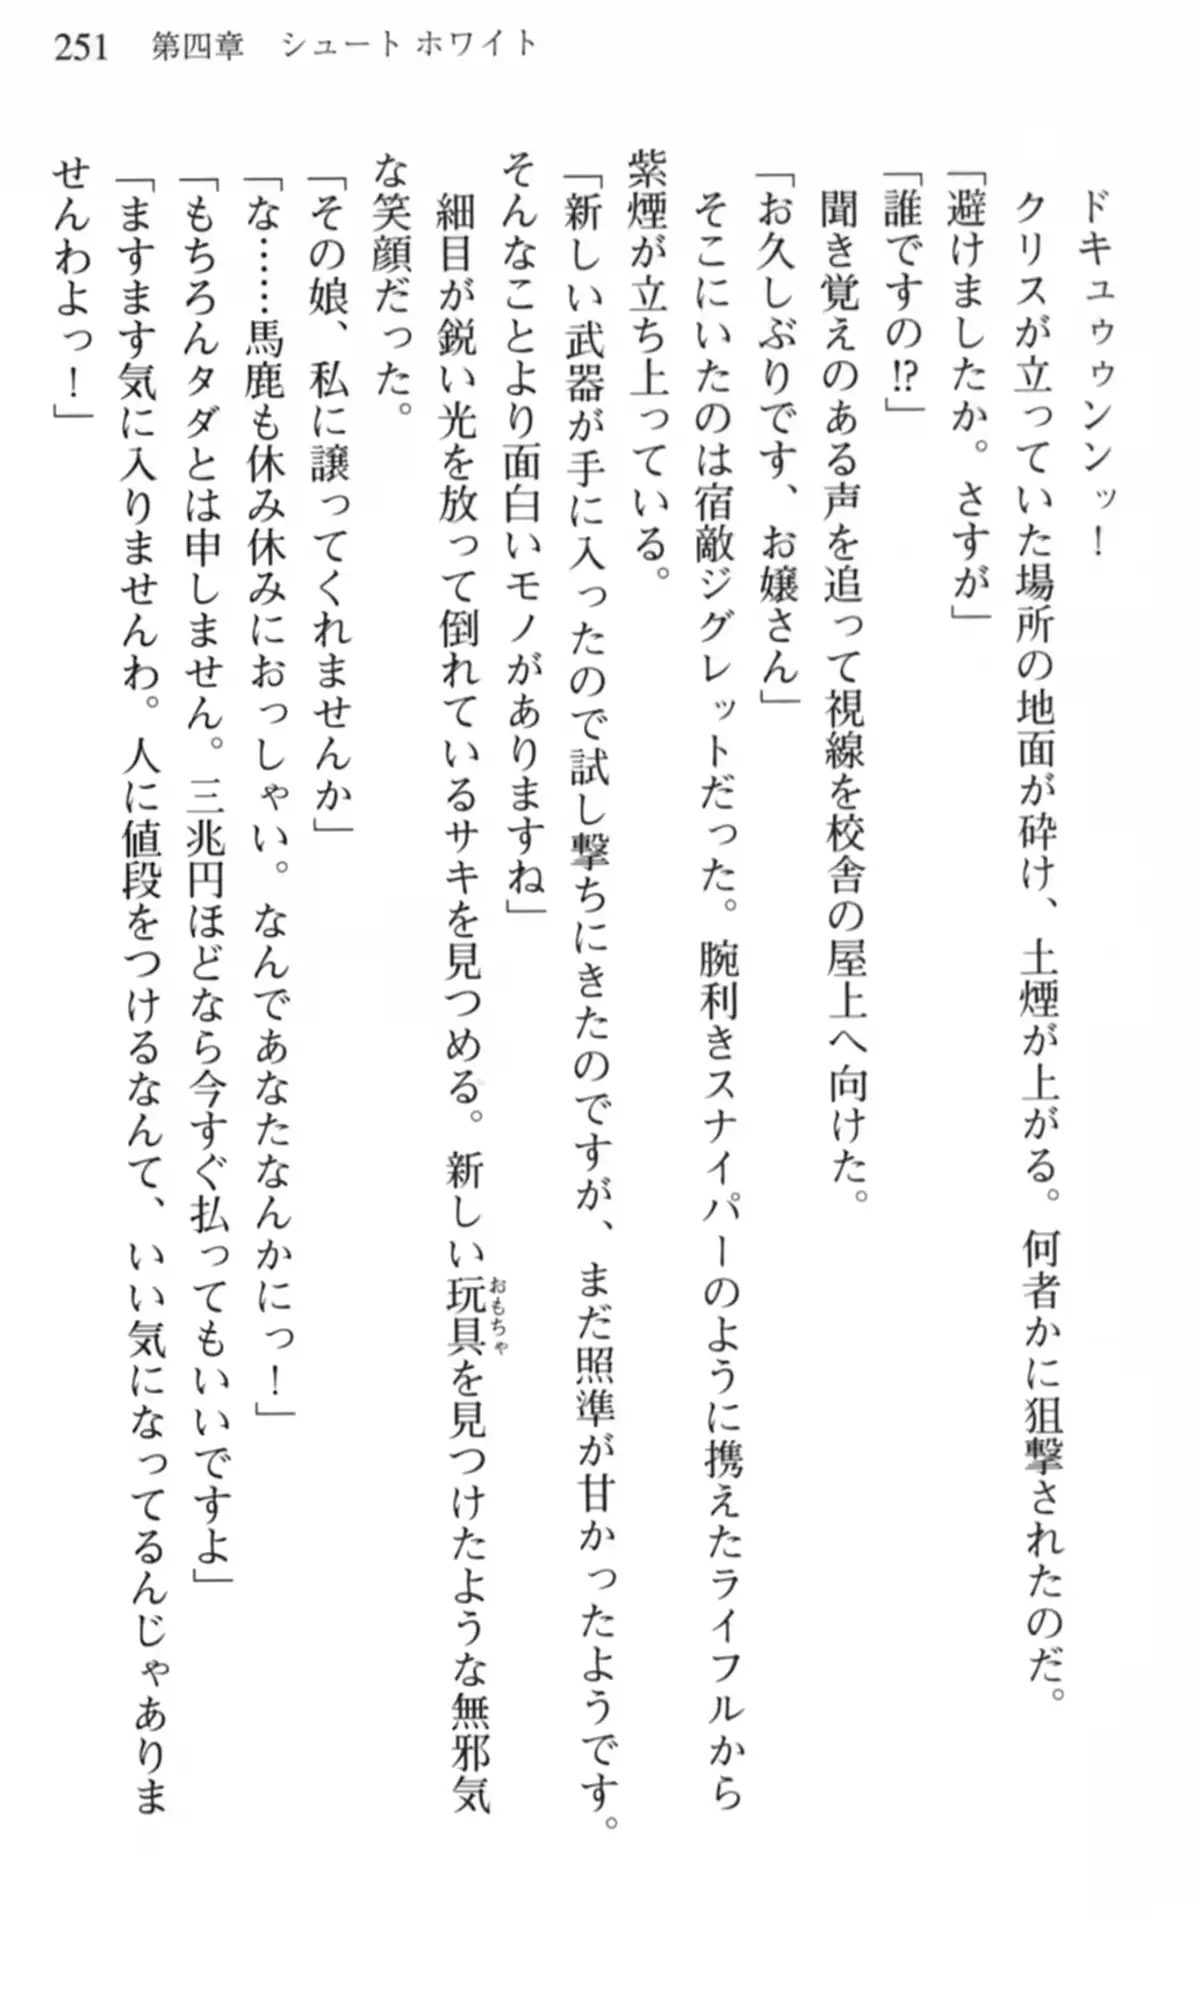 251　第四章　シュート ホワイト
ドキュゥゥンンッ！
クリスが立っていた場所の地面が砕け、土煙が上がる。何者かに狙撃されたのだ。
「避けましたか。さすが」
「誰ですの!?」
聞き覚えのある声を追って視線を校舎の屋上へ向けた。
「お久しぶりです、お嬢さん」
そこにいたのは宿敵ジグレットだった。腕利きスナイパーのように携えたライフルから
紫煙が立ち上っている。
「新しい武器が手に入ったので試し撃ちにきたのですが、まだ照準が甘かったようです。
そんなことより面白いモノがありますね」
細目が鋭い光を放って倒れているサキを見つめる。新しい玩具を見つけたような無邪気
おもちゃ
な笑顔だった。
「その娘、私に譲ってくれませんか」
「な……馬鹿も休み休みにおっしゃい。なんであなたなんかにっ！」
「もちろんタダとは申しません。三兆円ほどなら今すぐ払ってもいいですよ」
「ますます気に入りませんわ。人に値段をつけるなんて、いい気になってるんじゃありま
せんわよっ！」